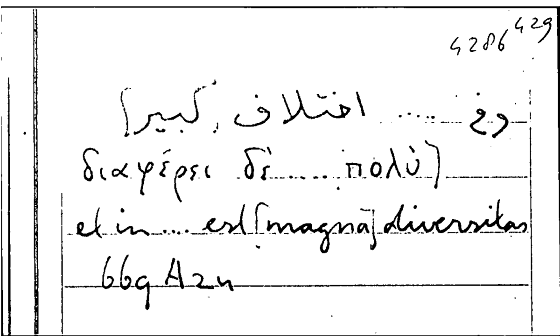 4286 429
وفي ..... اختلاف [كبير]
διαφέρει δέ ..... πολύ]
et in ... est [magna] diversitas
669 A 24